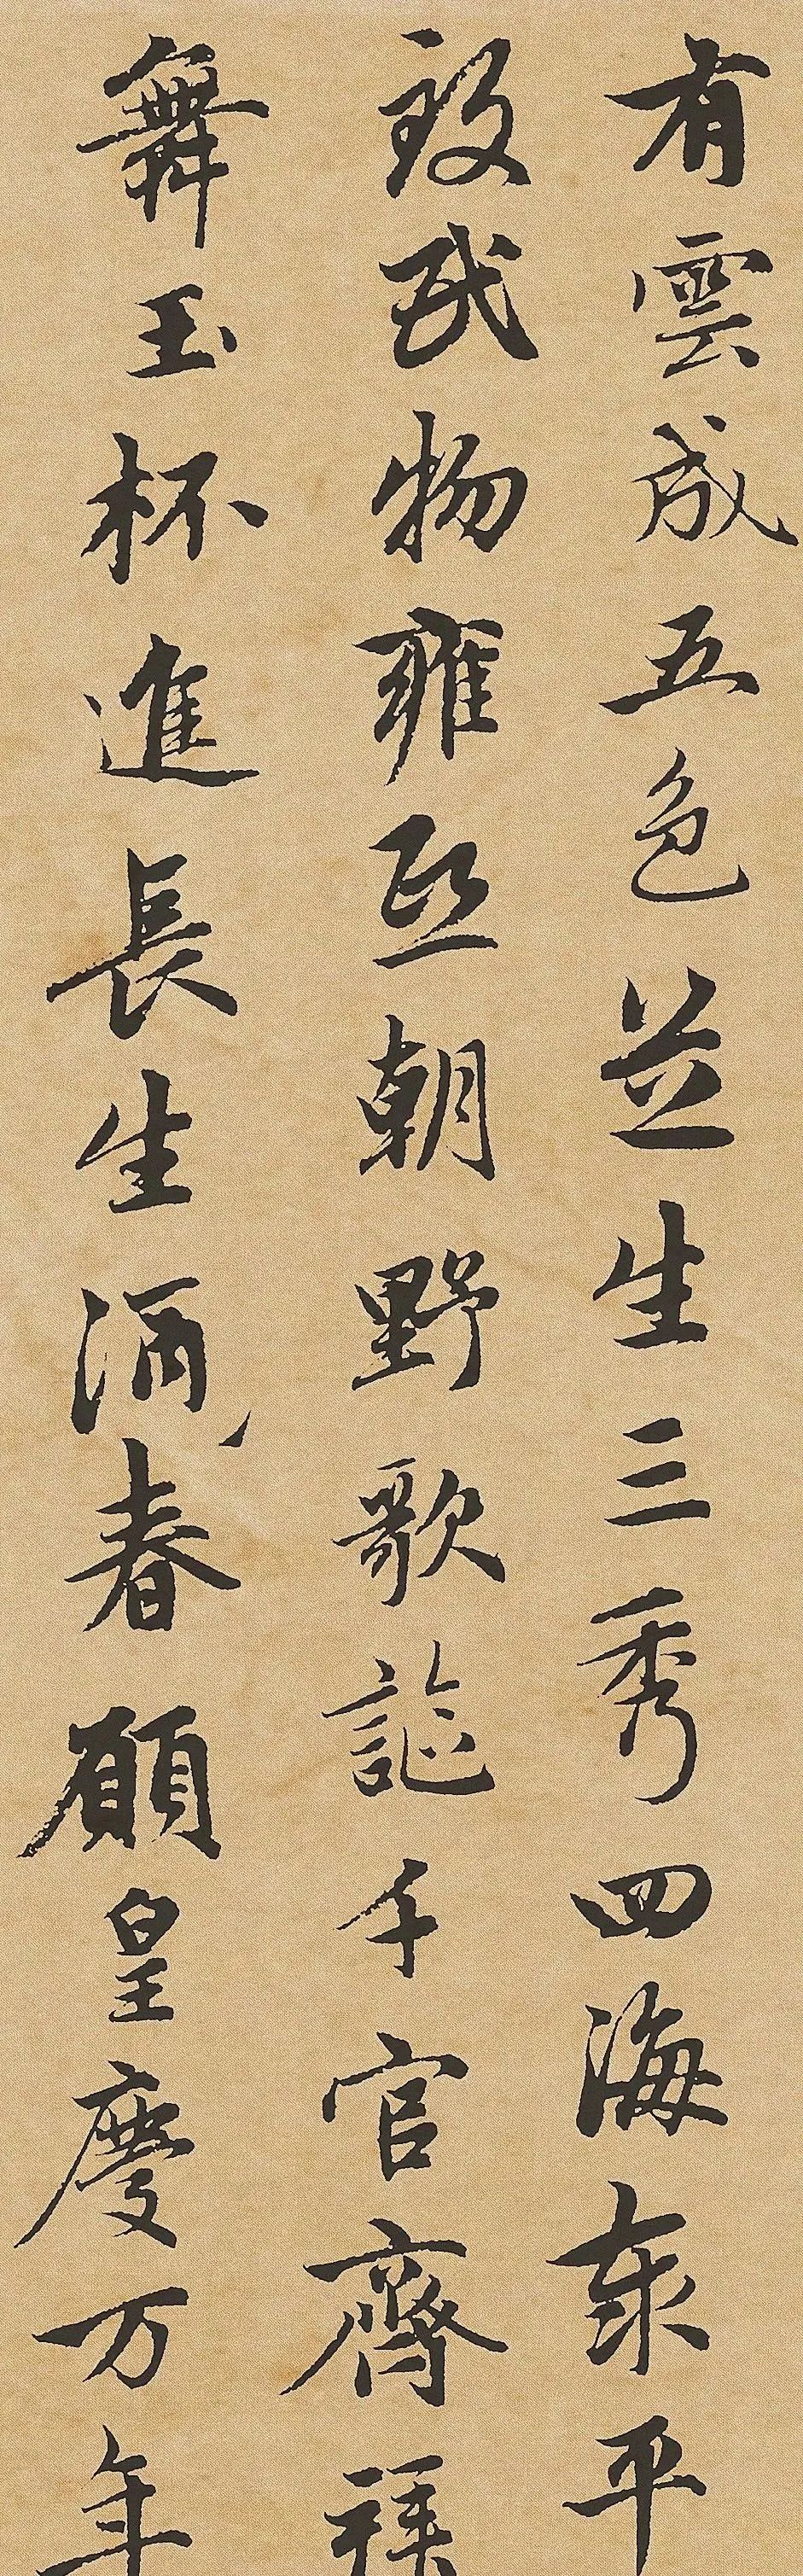 有雲成五色芝生三秀四海泰平
致民物雍熙朝野歌謳千官齊拜
舞玉杯進長生酒春願皇慶万年